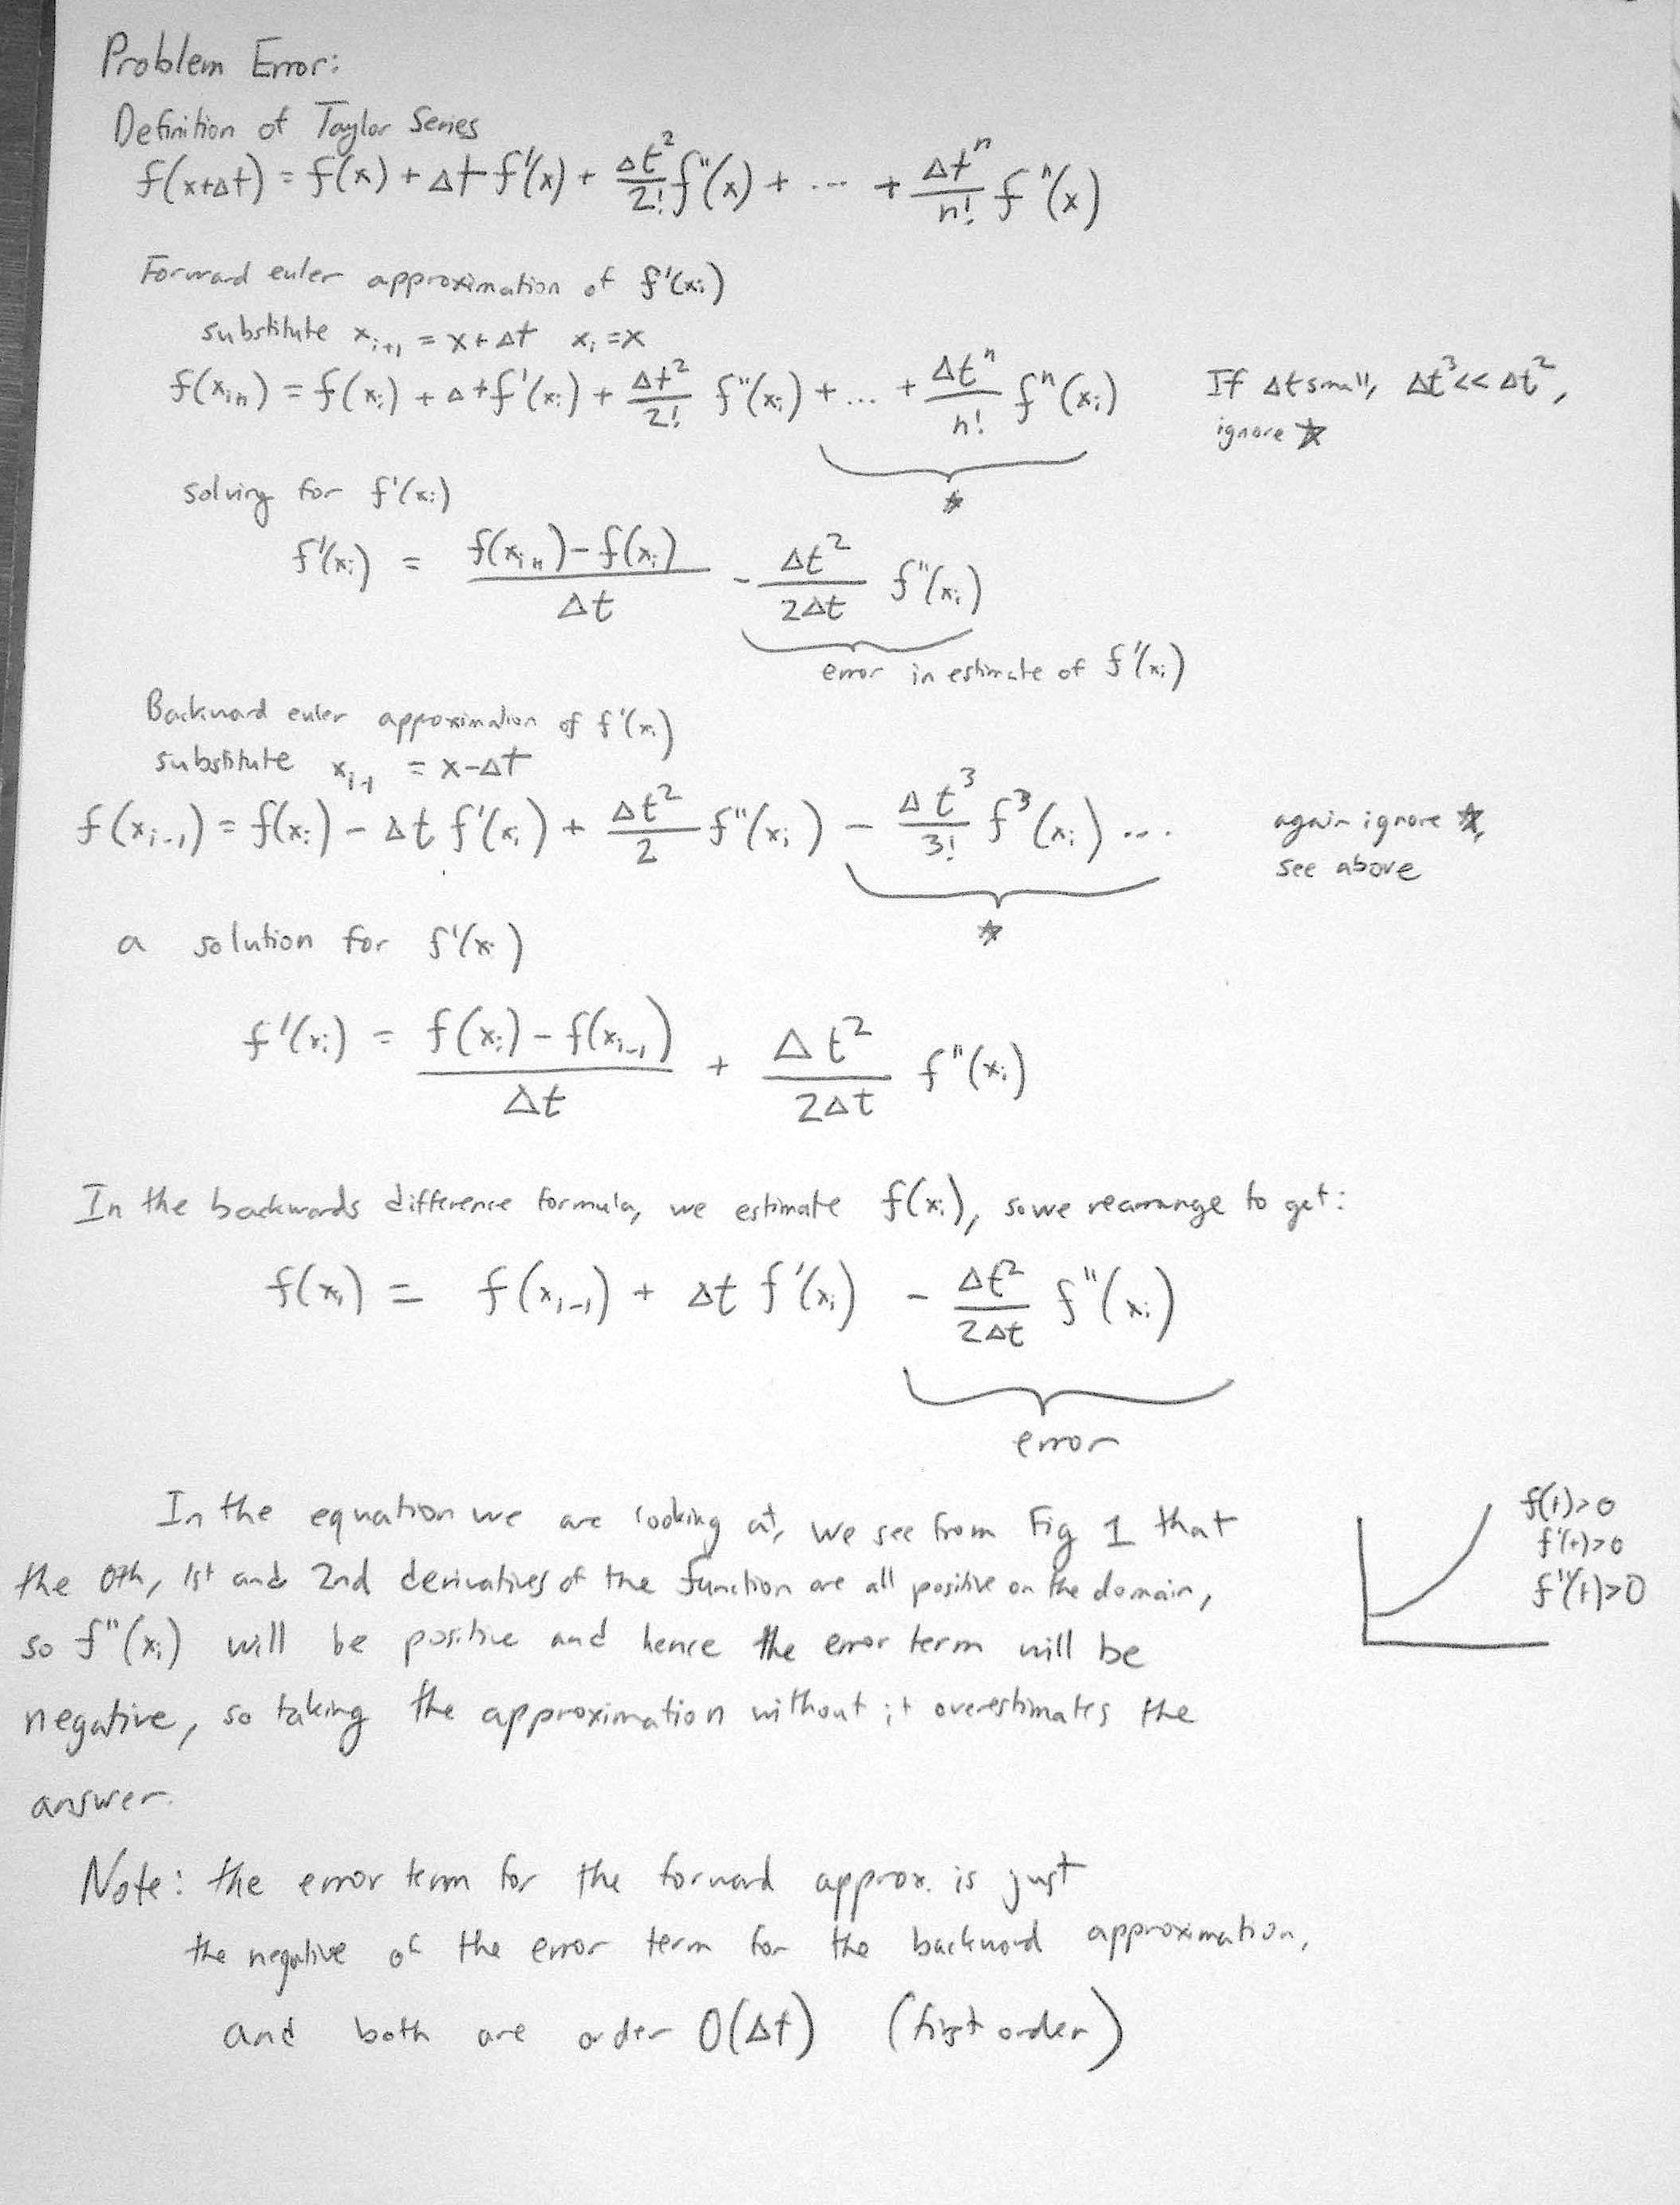 Problem Error:
Definition of Taylor Series
f(x+Δt) = f(x) + Δt f'(x) + Δt²/2! f''(x) + ... + Δtⁿ/n! fⁿ(x)
Forward euler approximation of f'(xᵢ)
substitute xᵢ₊₁ = x+Δt xᵢ = x
f(xᵢ₊₁) = f(xᵢ) + Δt f'(xᵢ) + Δt²/2! f''(xᵢ) + ... + Δtⁿ/n! fⁿ(xᵢ)
☆
If Δt small, Δt³ << Δt²,
ignore ☆
solving for f'(xᵢ)
f'(xᵢ) = (f(xᵢ₊₁) - f(xᵢ))/Δt - Δt²/2Δt f''(xᵢ)
error in estimate of f'(xᵢ)
Backward euler approximation of f'(xᵢ)
substitute xᵢ₋₁ = x-Δt
f(xᵢ₋₁) = f(xᵢ) - Δt f'(xᵢ) + Δt²/2 f''(xᵢ) - Δt³/3! f³(xᵢ) ...
☆
again ignore ☆,
see above
a solution for f'(xᵢ)
f'(xᵢ) = (f(xᵢ) - f(xᵢ₋₁))/Δt + Δt²/2Δt f''(xᵢ)
In the backwards difference formula, we estimate f(xᵢ), so we rearrange to get:
f(xᵢ) = f(xᵢ₋₁) + Δt f'(xᵢ) - Δt²/2Δt f''(xᵢ)
error
In the equation we are looking at, we see from Fig 1 that
the 0th, 1st and 2nd derivatives of the function are all positive on the domain,
so f''(xᵢ) will be positive and hence the error term will be
negative, so taking the approximation without it overestimates the
answer.
f(t)>0
f'(t)>0
f''(t)>0
Note: the error term for the forward approx. is just
the negative of the error term for the backward approximation,
and both are order O(Δt) (first order)